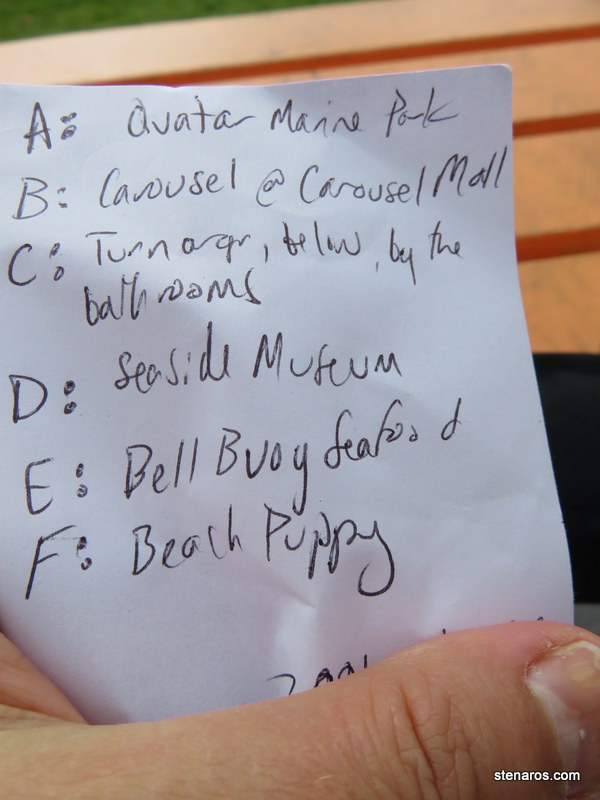 A: Avatar Marine Park
B: Carousel @ Carousel Mall
C: Turnaround, below, by the
bathrooms
D: Seaside Museum
E: Bell Buoy Seafood
F: Beach Puppy
stenaros.com